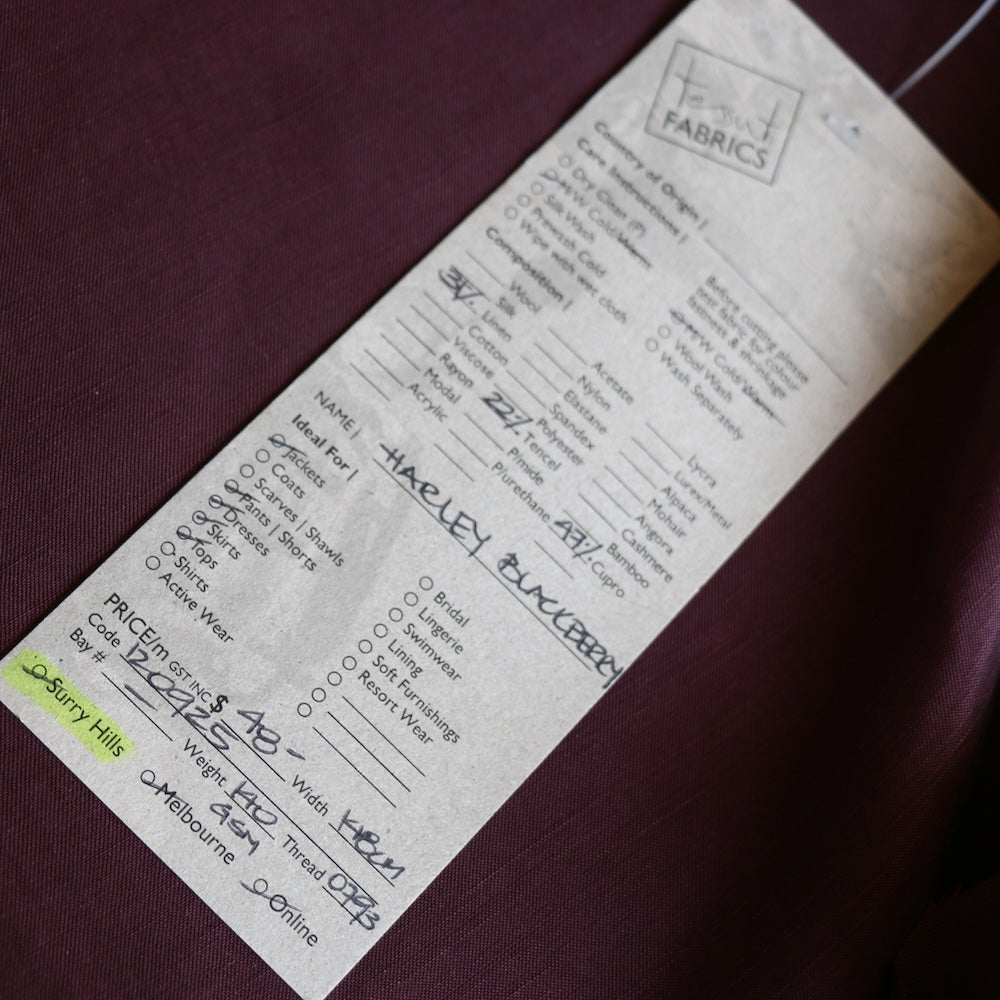 tessuti
FABRICS
Country of Origin |
Care Instructions |
Dry Clean (P)
M/W Cold/Warm
Silk Wash
Prewash Cold
Wipe with wet cloth
Before cutting please
test fabric for colour
fastness & shrinkage
M/W Cold/Warm
Wool Wash
Wash Separately
Composition |
Wool
Silk
31% Linen
Cotton
Viscose
Rayon
Modal
Acrylic
Acetate
Nylon
Elastane
Spandex
Polyester
22% Tencel
P/mide
P/urethane
Lycra
Lurex/Metal
Alpaca
Mohair
Angora
Cashmere
Bamboo
47% Cupro
NAME | HARLEY BLACKBERRY
Ideal For |
Jackets
Coats
Scarves | Shawls
Pants | Shorts
Dresses
Skirts
Tops
Shirts
Active Wear
Bridal
Lingerie
Swimwear
Lining
Soft Furnishings
Resort Wear
PRICE/m GST INC $ 48-
Code 120925 Width
Bay # Weight 140 GSM Thread 0793
Surry Hills Melbourne Online